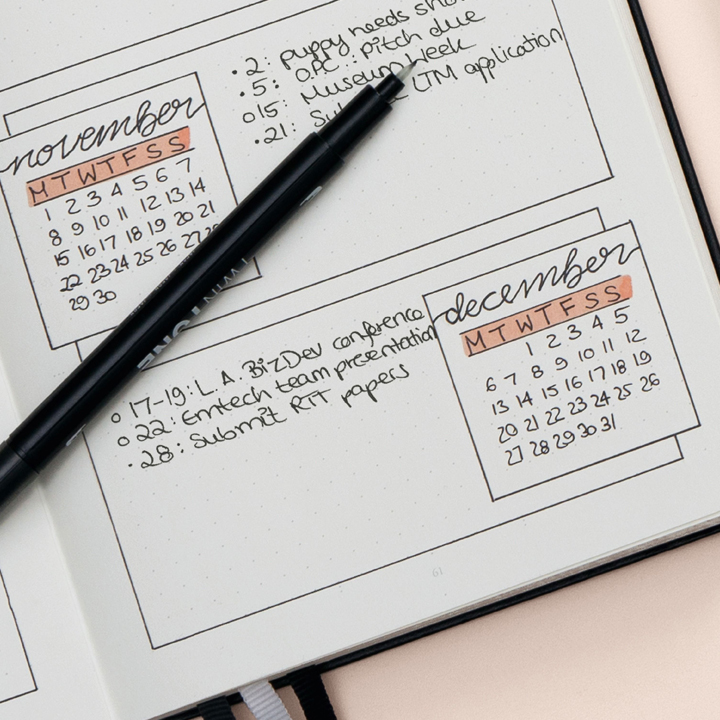 november
M T W T F S S
1 2 3 4 5 6 7
8 9 10 11 12 13 14
15 16 17 18 19 20 21
22 23 24 25 26 27 28
29 30
• 2: puppy needs
• 5: OPC: pitch due
o 15: Museum week
• 21: LTM application
TWINTONE
o 17-19: L.A. BizDev conference
o 22: Emtech team presentation
• 28: Submit RTT papers
december
M T W T F S S
1 2 3 4 5
6 7 8 9 10 11 12
13 14 15 16 17 18 19
20 21 22 23 24 25 26
27 28 29 30 31
61